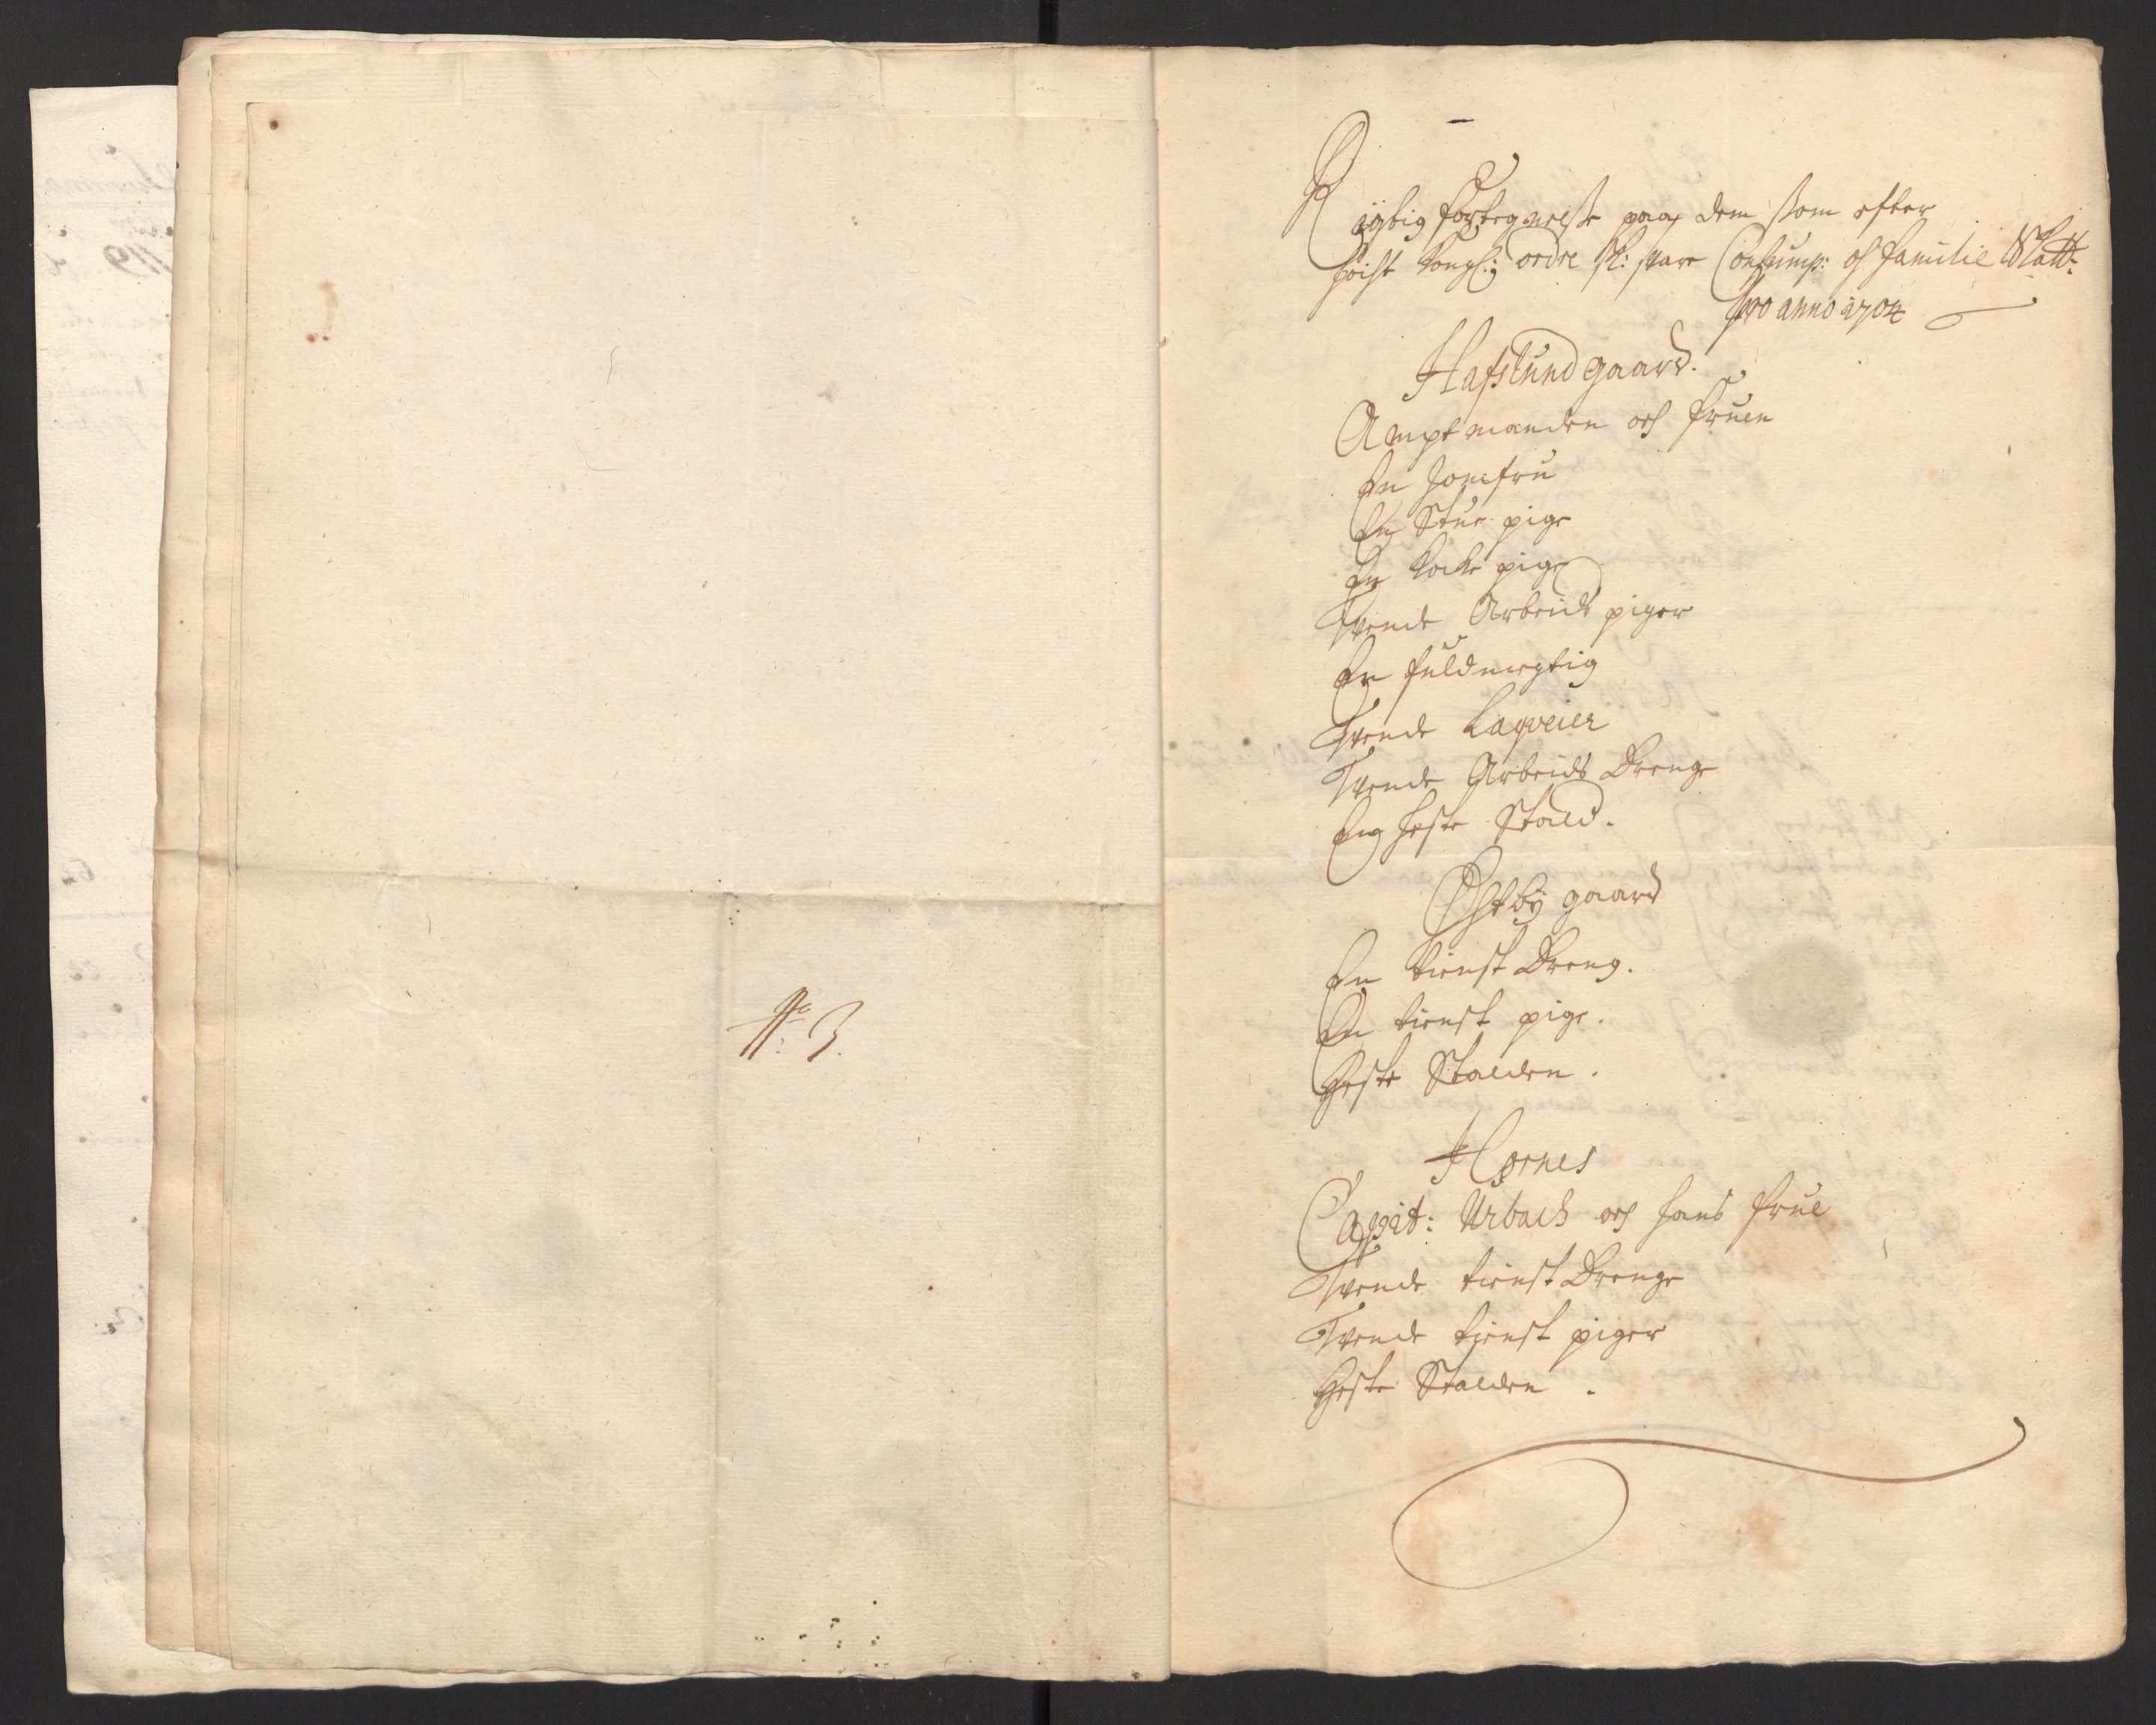 No 3.
Rigtig fortegnelse paa dem som efter
høist Kongl: ordre sk: svare Consump: og familie Skatt:
pro anno 1704
Hafslund gaard.
Amptmanden och fruen
En Jomfru
En Stue pige
En Kocke pige
Tvende Arbeids piger
En fuldmegtig
Tvende Laqveier
Tvende Arbeids Drenge
En heste Stald.
Østbÿ gaard
En tienst Dreng.
En tienst pige.
Heste Stalden.
Hørnes
Capit: Urbach och hans frue
Tvende tienst Drenge
Tvende tienst piger
Heste Stalden.